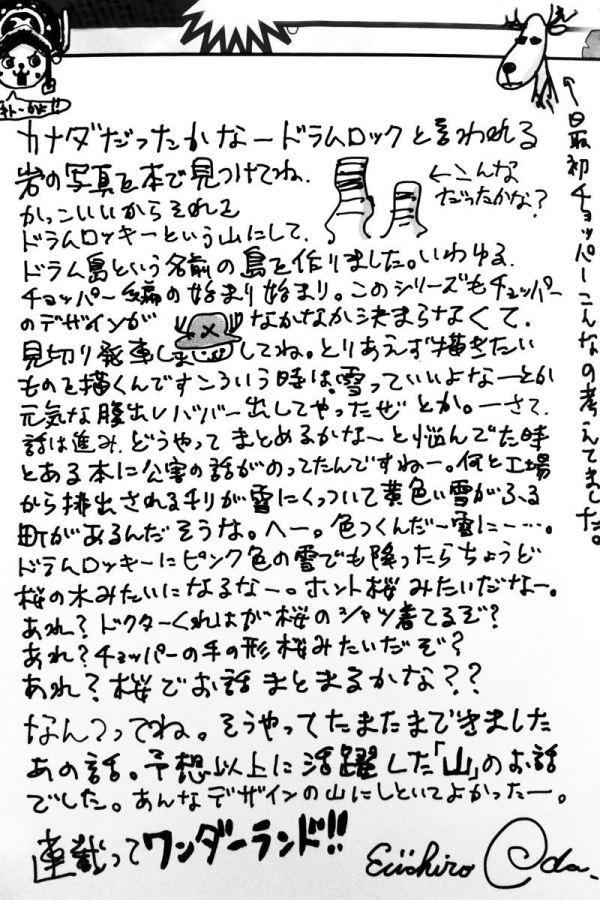 カナダだったかなードラムロックと言われる
岩の写真を本で見つけてね.
かっこいいからそれを
ドラムロッキーという山にして.
ドラム島という名前の島を作りました。いわゆる.
チョッパー編の始まり始まり。このシリーズもチョッパー
のデザインが なかなか決まらなくて.
見切り発車しま してね。とりあえず描きたい
ものを描くんですこういう時は、雪っていいよなーとか
元気な腹出しババー出してやったぜとか。ーさて.
話は進み.どうやってまとめるかなーと悩んでた時
とある本に公害の話がのってたんですねー。何と工場
から排出されるチリが雪にくっついて黄色い雪がふる
町があるんだそうな。へー。色つくんだー雪にー…。
ドラムロッキーにピンク色の雪でも降ったらちょうど
桜の木みたいになるなー。ホント桜みたいだなー。
あれ?ドクターくれはが桜のシャツ着てるぞ?
あれ?チョッパーの手の形桜みたいだぞ?
あれ?桜でお話まとまるかな??
なんつってね。そうやってたまたまできました
あの話。予想以上に活躍した「山」のお話
でした。あんなデザインの山にしといてよかったー。
連載ってワンダーランド!!
Eiichiro Oda.
←こんな
だったかな?
←最初チョッパーこんなの考えてました。